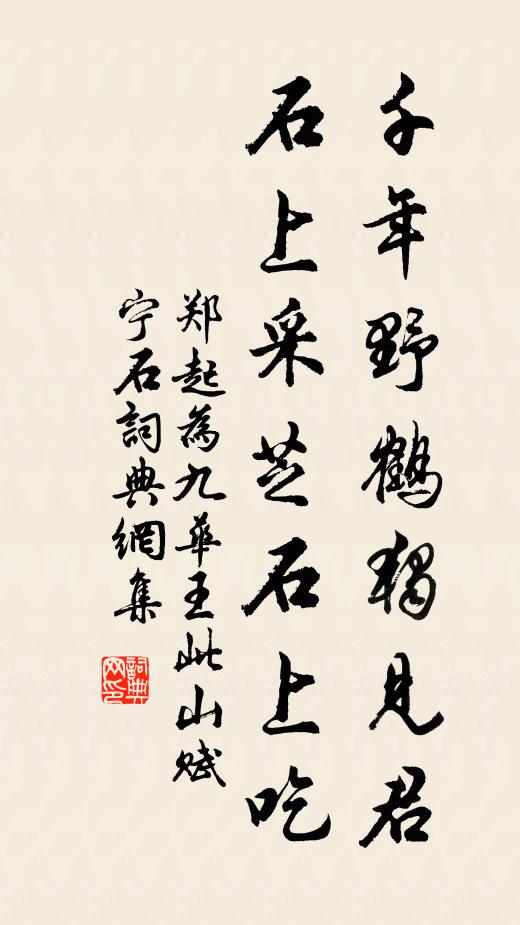 千年野鶴獨見君
石上采芝石上吃
郑起為九華王此山賦
宁石詞典網集
詞典
网印